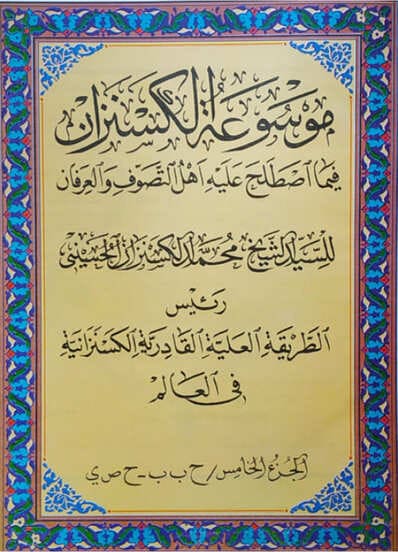 موسوعة الكسنزان
فيما اصطلح عليه أهل التصوف والعرفان
للسيد الشيخ محمد الكسنزان الحسيني
رئيس
الطريقة العلية القادرية الكسنزانية
في العالم
الجزء الخامس / ح ب ب - ح ص ي